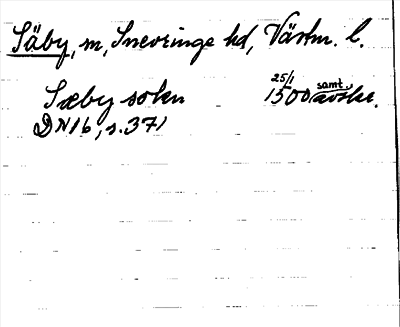 Säby, m, Snevringe hd, Västm. l.
Sæby sokn 25/1 1500 samt. avskr.
DN 16, s. 371